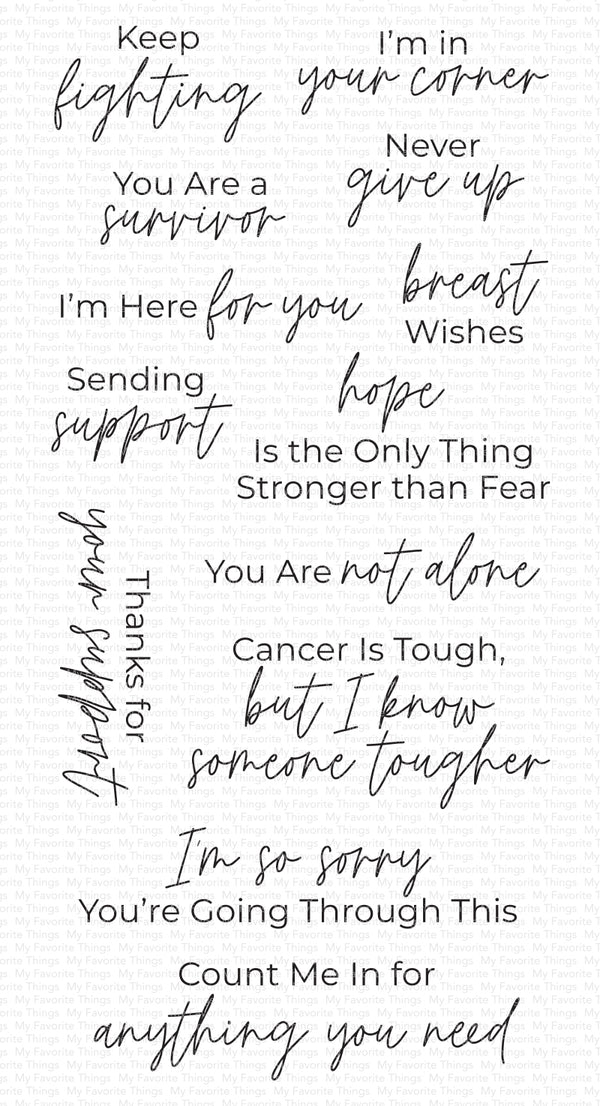 Keep
fighting
I'm in
your corner
Never
give up
You Are a
survivor
I'm Here for you
breast
Wishes
Sending
support
hope
Is the Only Thing
Stronger than Fear
You Are not alone
Thanks for
your support
Cancer Is Tough,
but I know
someone tougher
I'm so sorry
You're Going Through This
Count Me In for
anything you need
My Favorite Things